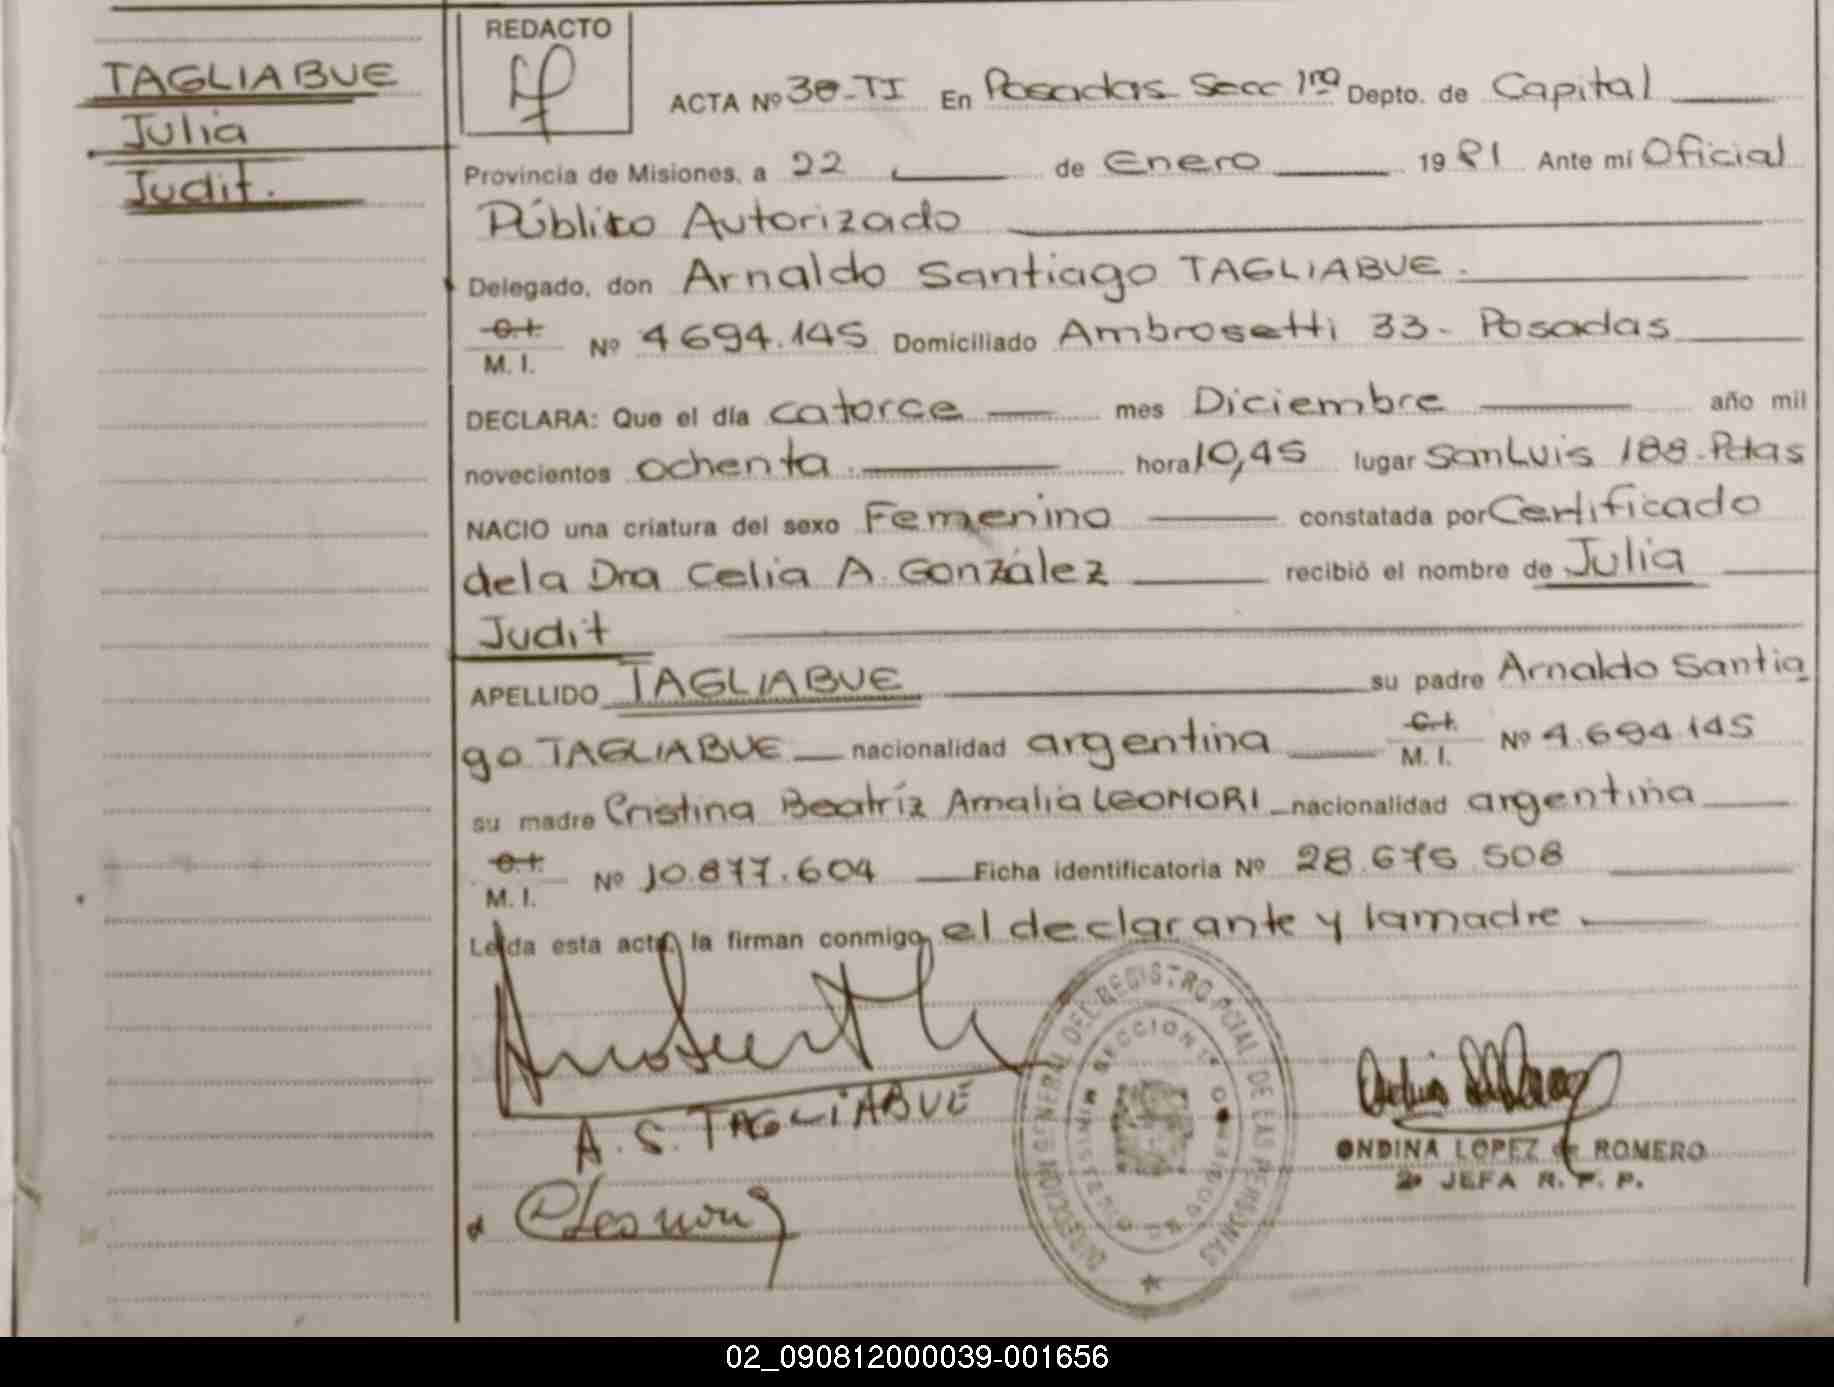 TAGLIABUE
Julia
Judit.
REDACTO
ACTA Nº 38-TI En Posadas Secc 1ra Depto. de Capital
Provincia de Misiones, a 22 de Enero 1981 Ante mí Oficial
Público Autorizado
Delegado, don Arnaldo Santiago TAGLIABUE.
C.I.
M. I. Nº 4694.145 Domiciliado Ambrosetti 33- Posadas
DECLARA: Que el día catorce mes Diciembre año mil
novecientos ochenta hora 10,45 lugar San Luis 188-Pdas
NACIO una criatura del sexo Femenino constatada por Certificado
dela Dra Celia A. González recibió el nombre de Julia
Judit
APELLIDO TAGLIABUE su padre Arnaldo Santia
go TAGLIABUE nacionalidad argentina C.I. M. I. Nº 4.694.145
su madre Cristina Beatríz Amalia LEONORI nacionalidad argentina
C.I.
M. I. Nº 10.877.604 Ficha identificatoria Nº 28.675.508
Leída esta acta, la firman conmigo, el declarante y lamadre.
A. S. TAGLIABUE
DIRECCION GENERAL DEL REGISTRO PCIAL DE LAS PERSONAS
SECCION 1ª
MISIONES
ONDINA LOPEZ de ROMERO
2º JEFA R. P. P.
02_090812000039-001656